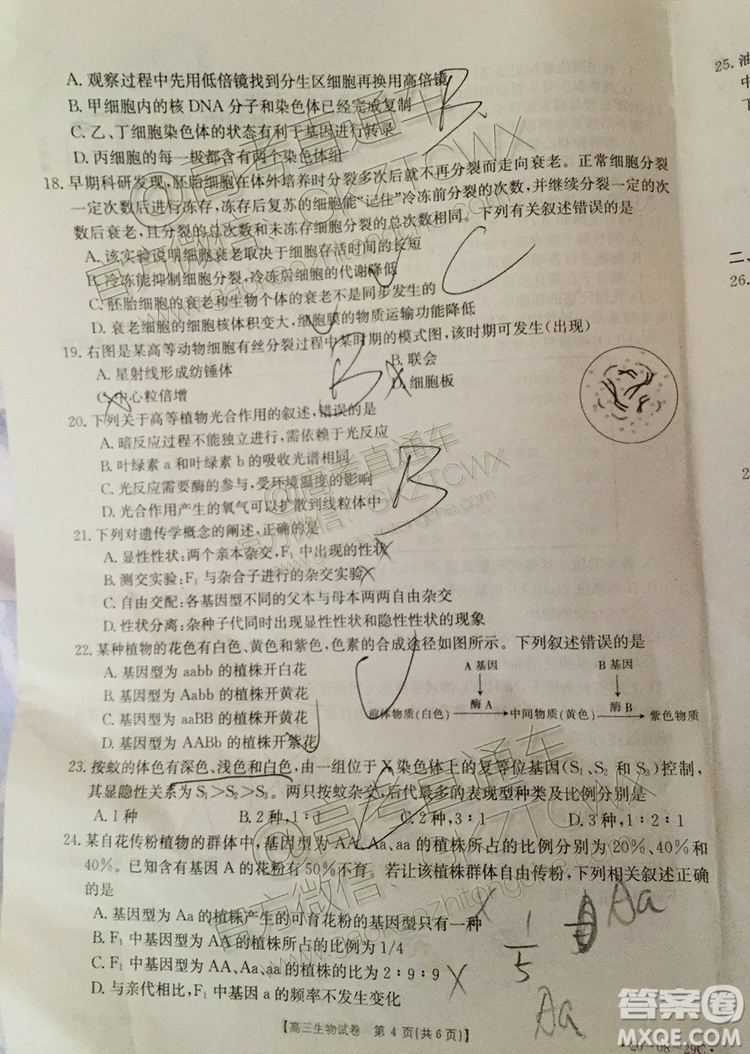 A. 观察过程中先用低倍镜找到分生区细胞再换用高倍镜
B. 甲细胞内的核 DNA 分子和染色体已经完成复制
C. 乙、丁细胞染色体的状态有利于基因进行转录
D. 丙细胞的每一极都含有两个染色体组
18. 早期科研发现,胚胎细胞在体外培养时分裂多次后就不再分裂而走向衰老。正常细胞分裂
一定次数后进行冻存,冻存后复苏的细胞能“记住”冷冻前分裂的次数,并继续分裂一定的次
数后衰老,且分裂的总次数和未冻存细胞分裂的总次数相同。下列有关叙述错误的是
A. 该实验说明细胞分裂次数取决于细胞存活时间的长短
B. 冷冻能抑制细胞分裂,冷冻后细胞的代谢降低
C. 胚胎细胞的衰老和生物个体的衰老不是同步发生的
D. 衰老细胞的细胞核体积变大,细胞膜的物质运输功能降低
19. 右图是某高等动物细胞有丝分裂过程中某时期的模式图,该时期可发生(出现)
A. 星射线形成纺锤体
B. 联会
C. 中心粒倍增
D. 细胞板
20. 下列关于高等植物光合作用的叙述,错误的是
A. 暗反应过程不能独立进行,需依赖于光反应
B. 叶绿素 a 和叶绿素 b 的吸收光谱相同
C. 光反应需要酶的参与,受环境温度的影响
D. 光合作用产生的氧气可以扩散到线粒体中
21. 下列对遗传学概念的阐述,正确的是
A. 显性性状:两个亲本杂交,F₁ 中出现的性状
B. 测交实验:F₁ 与杂合子进行的杂交实验
C. 自由交配:各基因型不同的父本与母本两两自由杂交
D. 性状分离:杂种子代同时出现显性性状和隐性性状的现象
22. 某种植物的花色有白色、黄色和紫色,色素的合成途径如图所示。下列叙述错误的是
A. 基因型为 aabb 的植株开白花
B. 基因型为 Aabb 的植株开黄花
C. 基因型为 aaBB 的植株开黄花
D. 基因型为 AABb 的植株开紫花
A 基因 B 基因
酶 A 酶 B
前体物质(白色) 中间物质(黄色) 紫色物质
23. 按蚊的体色有深色、浅色和白色,由一组位于 X 染色体上的复等位基因(S₁、S₂ 和 S₃)控制,
其显隐性关系为 S₁>S₂>S₃。两只按蚊杂交,后代最多的表现型种类及比例分别是
A. 1 种
B. 2 种,1:1
C. 2 种,3:1
D. 3 种,2:1:1
24. 某自花传粉植物的群体中,基因型为 AA、Aa、aa 的植株所占的比例分别为 20%、40%和
40%。已知含有基因 A 的花粉有 50%不育。若让该植株群体自由传粉,下列相关叙述正确
的是
A. 基因型为 Aa 的植株产生的可育花粉的基因型只有一种
B. F₁ 中基因型为 AA 的植株所占的比例为 1/4
C. F₁ 中基因型为 AA、Aa、aa 的植株的比为 2:9:9
D. 与亲代相比,F₁ 中基因 a 的频率不发生变化
【高三生物试卷 第 4 页(共 6 页)】
25. 油
中
下
二、
26.
B
C
B
B
1/5
Aa
Aa
@高考直通车
官方微信:GKZTCWX
答案圈
MXQE.COM